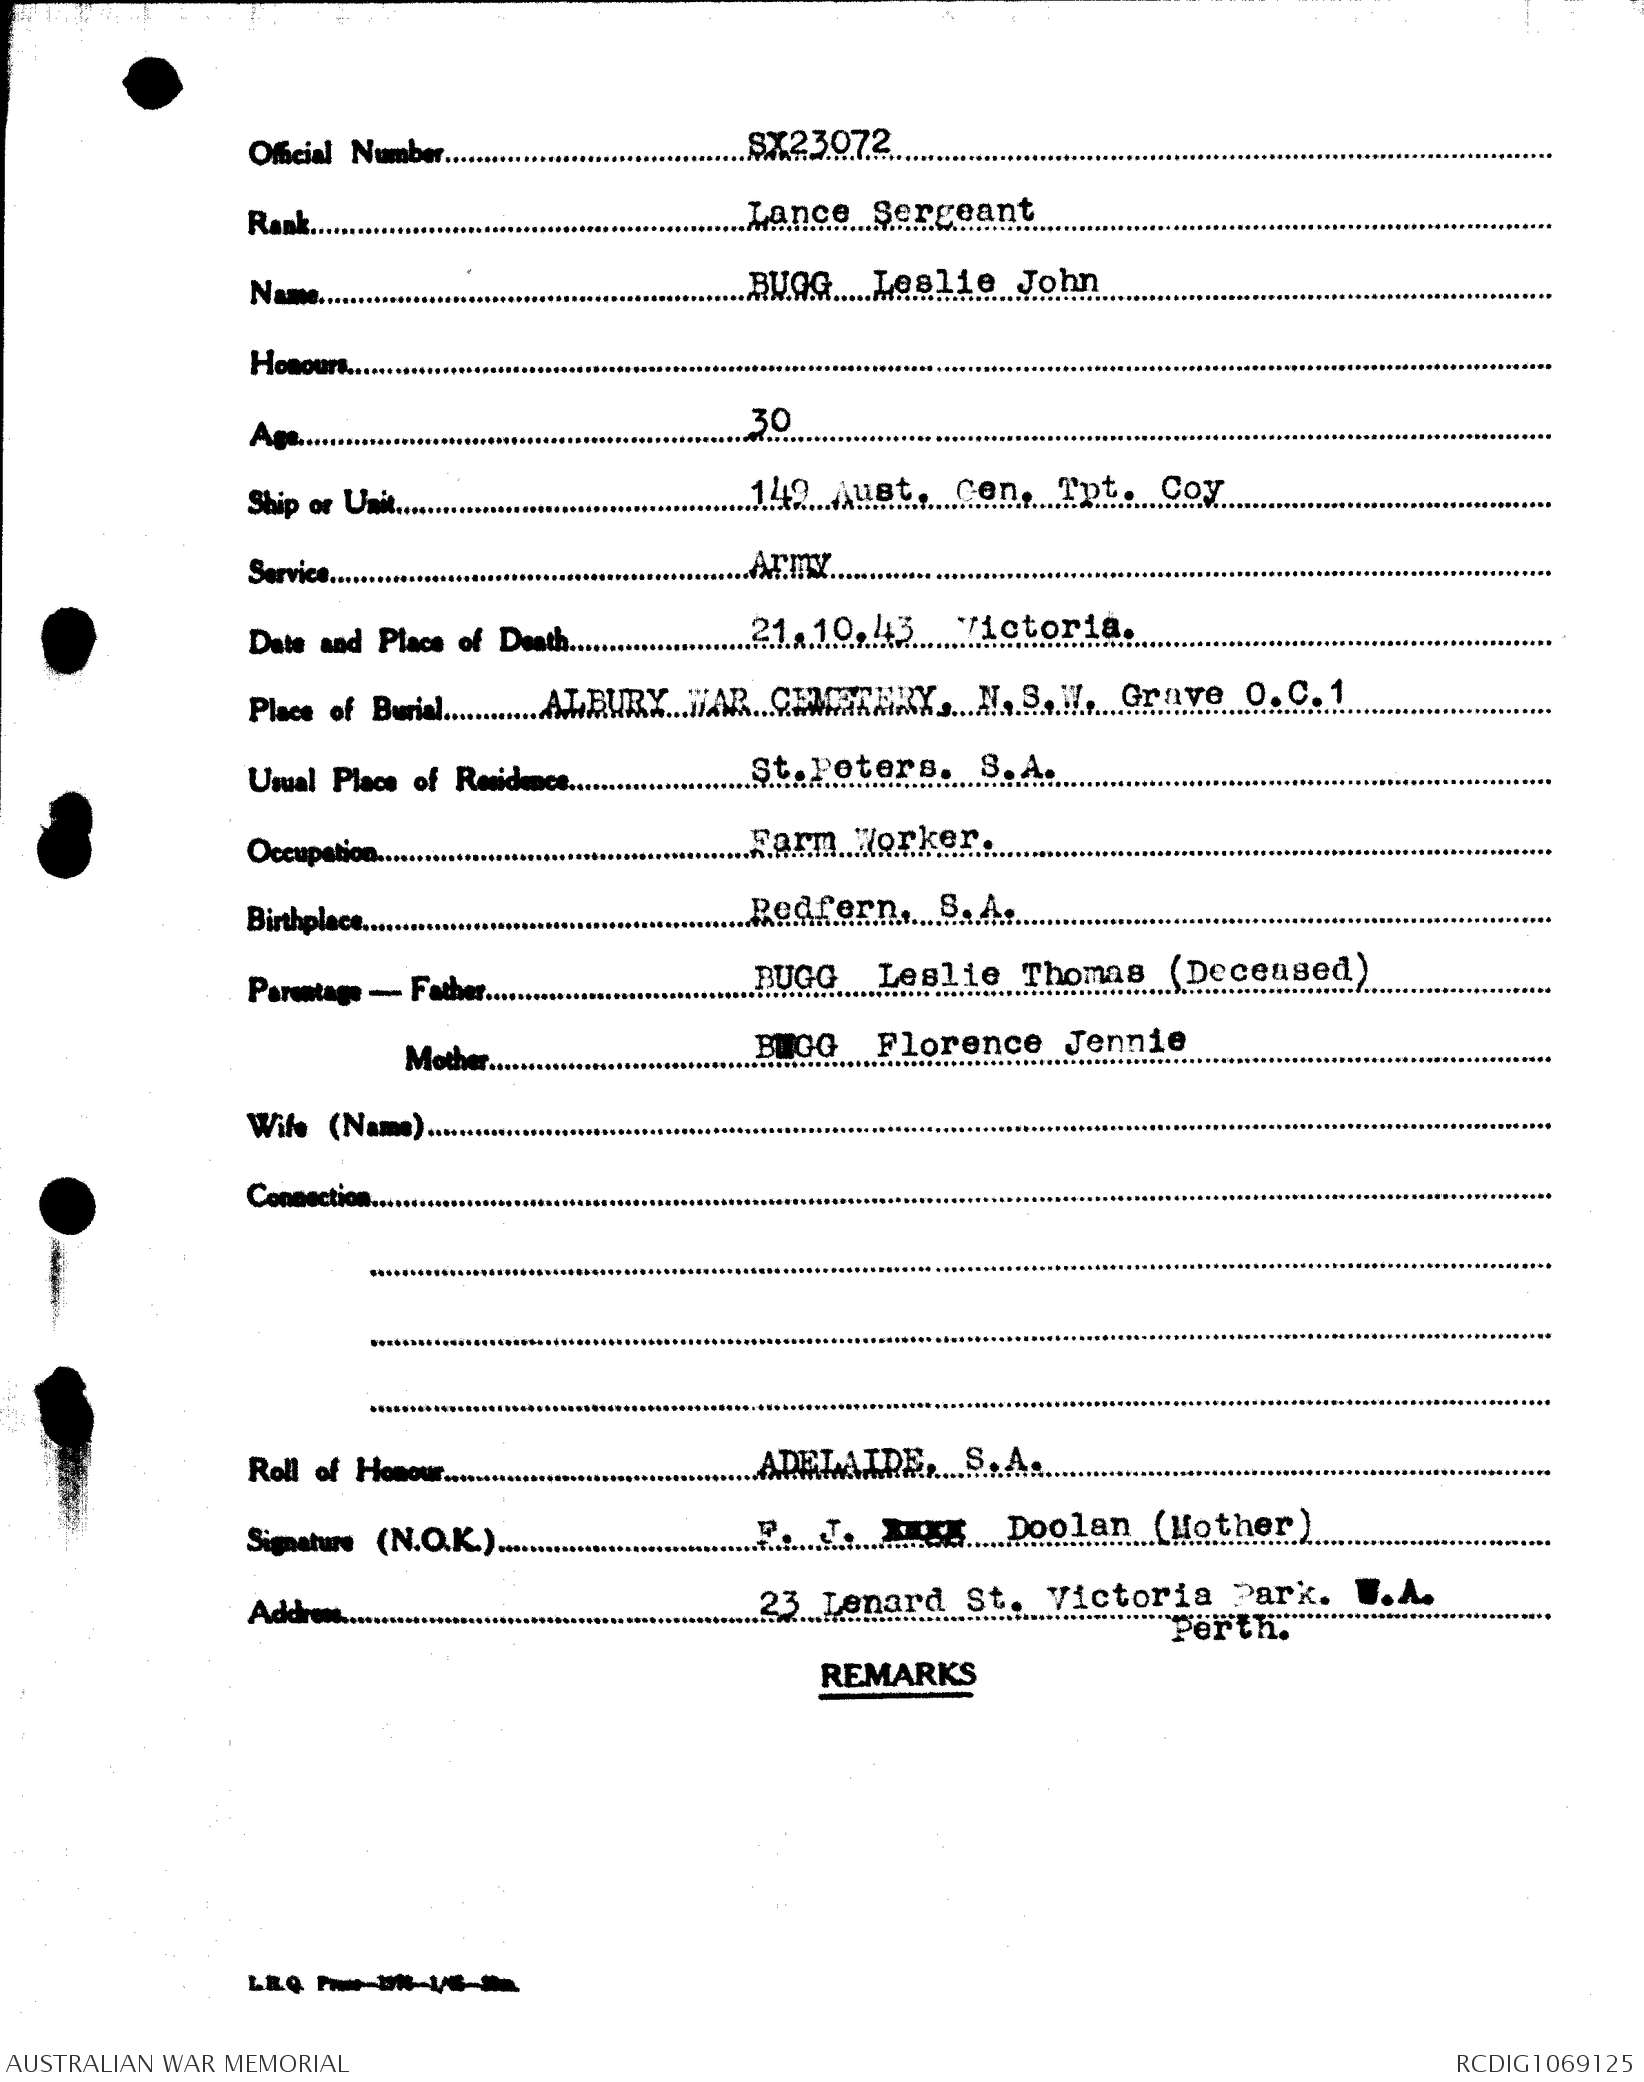 Official Number SX23072
Rank Lance Sergeant
Name BUGG Leslie John
Honours
Age 30
Ship or Unit 149 Aust. Gen. Tpt. Coy
Service Army
Date and Place of Death 21.10.43 Victoria.
Place of Burial ALBURY WAR CEMETERY, N.S.W. Grave O.C.1
Usual Place of Residence St.Peters. S.A.
Occupation Farm Worker.
Birthplace Redfern, S.A.
Parentage — Father BUGG Leslie Thomas (Deceased)
Mother BUGG Florence Jennie
Wife (Name)
Connection
Roll of Honour ADELAIDE, S.A.
Signature (N.O.K.) F. J. Doolan (Mother)
Address 23 Lenard St. Victoria Park. W.A.
Perth.
REMARKS
L.H.Q. Press
AUSTRALIAN WAR MEMORIAL
RCDIG1069125